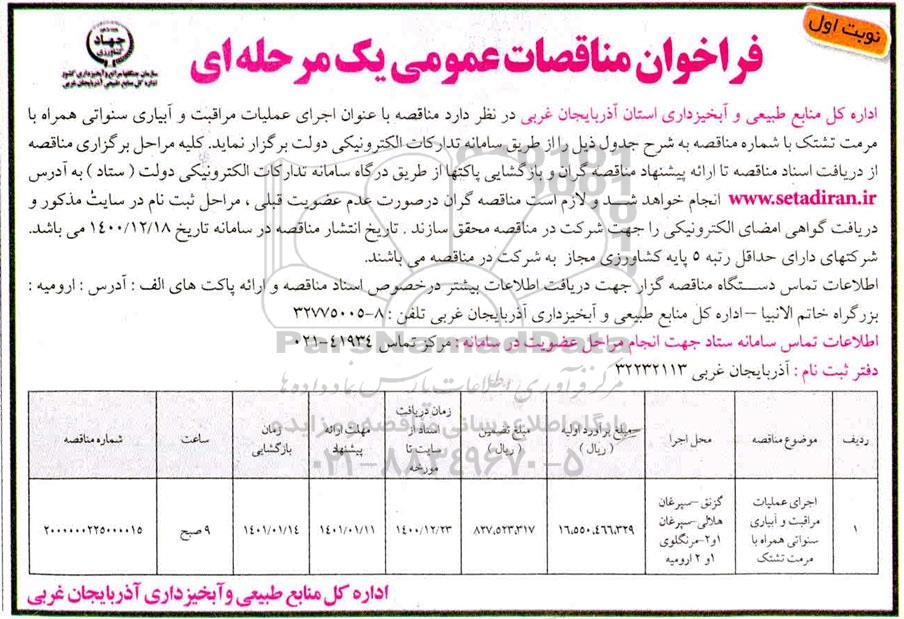 نوبت اول
جهاد
کشاورزی
سازمان جنگلها، مراتع و آبخیزداری کشور
اداره کل منابع طبیعی آذربایجان غربی
فراخوان مناقصات عمومی یک مرحله ای
اداره کل منابع طبیعی و آبخیزداری استان آذربایجان غربی در نظر دارد مناقصه با عنوان اجرای عملیات مراقبت و آبیاری سنواتی همراه با
مرمت تشتک با شماره مناقصه به شرح جدول ذیل را از طریق سامانه تدارکات الکترونیکی دولت برگزار نماید. کلیه مراحل برگزاری مناقصه
از دریافت اسناد مناقصه تا ارائه پیشنهاد مناقصه گران و بازگشایی پاکتها از طریق درگاه سامانه تدارکات الکترونیکی دولت ( ستاد ) به آدرس
www.setadiran.ir انجام خواهد شد و لازم است مناقصه گران درصورت عدم عضویت قبلی ، مراحل ثبت نام در سایت مذکور و
دریافت گواهی امضای الکترونیکی را جهت شرکت در مناقصه محقق سازند . تاریخ انتشار مناقصه در سامانه تاریخ ۱۴۰۰/۱۲/۱۸ می باشد.
شرکتهای دارای حداقل رتبه ۵ پایه کشاورزی مجاز به شرکت در مناقصه می باشند.
اطلاعات تماس دستگاه مناقصه گزار جهت دریافت اطلاعات بیشتر درخصوص اسناد مناقصه و ارائه پاکت های الف : آدرس : ارومیه :
بزرگراه خاتم الانبیا –اداره کل منابع طبیعی و آبخیزداری آذربایجان غربی تلفن : ۸-۳۲۷۷۵۰۰۵
اطلاعات تماس سامانه ستاد جهت انجام مراحل عضویت در سامانه : مرکز تماس ۴۱۹۳۴-۰۲۱
دفتر ثبت نام : آذربایجان غربی ۳۲۲۳۲۱۱۳
ParsNamadData
مرکز فرآوری اطلاعات پارس نماد داده ها
پایگاه اطلاع رسانی مناقصه و مزایده
۰۲۱-۸۸۳۴۹۶۷۰-۵
ردیف
موضوع مناقصه
محل اجرا
مبلغ برآورد اولیه
( ریال )
مبلغ تضمین
( ریال )
زمان دریافت
اسناد از
سایت تا
مورخه
مهلت ارائه
پیشنهاد
زمان
بازگشایی
ساعت
شماره مناقصه
۱
اجرای عملیات
مراقبت و آبیاری
سنواتی همراه با
مرمت تشتک
گزنق–سپرغان
هلالی–سپرغان
۱و۲–مرنگلوی
۱و ۲ ارومیه
۱۶,۵۵۰,۴۶۶,۳۲۹
۸۲۷,۵۲۳,۳۱۷
۱۴۰۰/۱۲/۲۳
۱۴۰۱/۰۱/۱۱
۱۴۰۱/۰۱/۱۴
۹ صبح
۲۰۰۰۰۰۰۲۲۵۰۰۰۰۱۵
اداره کل منابع طبیعی وآبخیزداری آذربایجان غربی